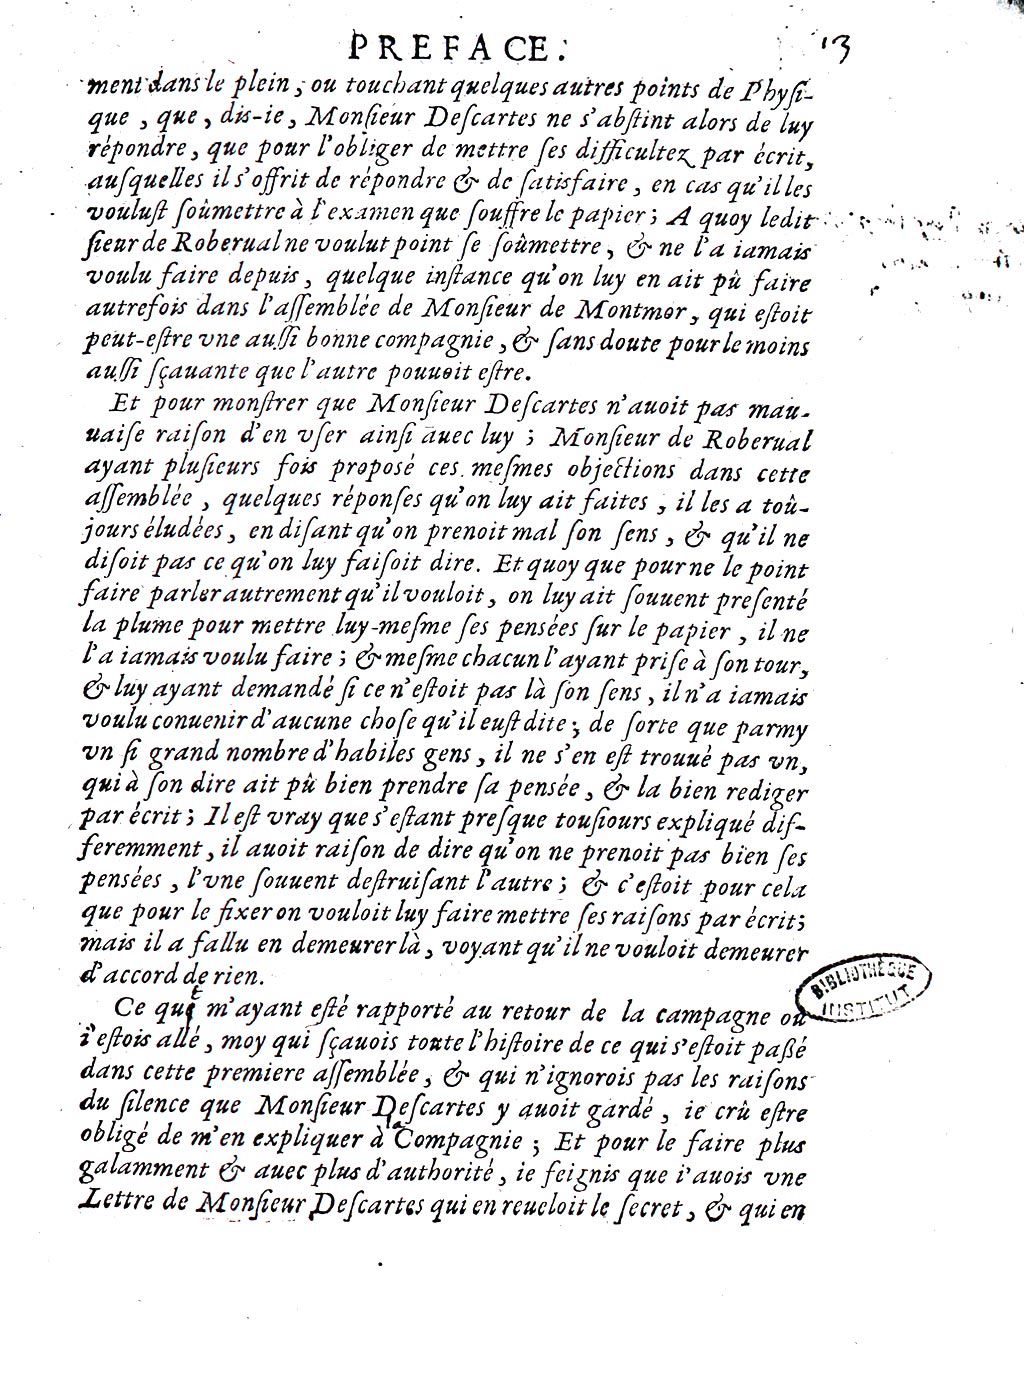 PREFACE. 13
ment dans le plein, ou touchant quelques autres points de Physi-
que, que, dis-ie, Monſieur Deſcartes ne s'abſtint alors de luy
répondre, que pour l'obliger de mettre ſes difficultez par écrit,
auſquelles il s'offrit de répondre & de ſatisfaire, en cas qu'il les
vouluſt ſoûmettre à l'examen que ſouffre le papier; A quoy ledit
ſieur de Roberual ne voulut point ſe ſoûmettre, & ne l'a iamais
voulu faire depuis, quelque inſtance qu'on luy en ait pû faire
autrefois dans l'aſſemblée de Monſieur de Montmor, qui eſtoit
peut-eſtre vne auſſi bonne compagnie, & ſans doute pour le moins
auſſi ſçauante que l'autre pouuoit eſtre.
Et pour monſtrer que Monſieur Deſcartes n'auoit pas mau-
uaiſe raiſon d'en vſer ainſi auec luy; Monſieur de Roberual
ayant pluſieurs fois propoſé ces meſmes objections dans cette
aſſemblée, quelques réponſes qu'on luy ait faites, il les a toû-
jours éludées, en diſant qu'on prenoit mal ſon ſens, & qu'il ne
diſoit pas ce qu'on luy faiſoit dire. Et quoy que pour ne le point
faire parler autrement qu'il vouloit, on luy ait ſouuent preſenté
la plume pour mettre luy-meſme ſes pensées ſur le papier, il ne
l'a iamais voulu faire; & meſme chacun l'ayant priſe à ſon tour,
& luy ayant demandé ſi ce n'eſtoit pas là ſon ſens, il n'a iamais
voulu conuenir d'aucune choſe qu'il euſt dite; de ſorte que parmy
vn ſi grand nombre d'habiles gens, il ne s'en eſt trouué pas vn,
qui à ſon dire ait pû bien prendre ſa pensée, & la bien rediger
par écrit; Il eſt vray que s'eſtant preſque touſiours expliqué dif-
feremment, il auoit raiſon de dire qu'on ne prenoit pas bien ſes
pensées, l'vne ſouuent deſtruiſant l'autre; & c'eſtoit pour cela
que pour le fixer on vouloit luy faire mettre ſes raiſons par écrit;
mais il a fallu en demeurer là, voyant qu'il ne vouloit demeurer
d'accord de rien.
BIBLIOTHÈQUE
INSTITUT
Ce que m'ayant eſté rapporté au retour de la campagne où
i'eſtois allé, moy qui ſçauois toute l'hiſtoire de ce qui s'eſtoit paßé
dans cette premiere aſſemblée, & qui n'ignorois pas les raiſons
du ſilence que Monſieur Deſcartes y auoit gardé, ie crû eſtre
obligé de m'en expliquer à la Compagnie; Et pour le faire plus
galamment & auec plus d'authorité, ie feignis que i'auois vne
Lettre de Monſieur Deſcartes qui en reueloit le ſecret, & qui en